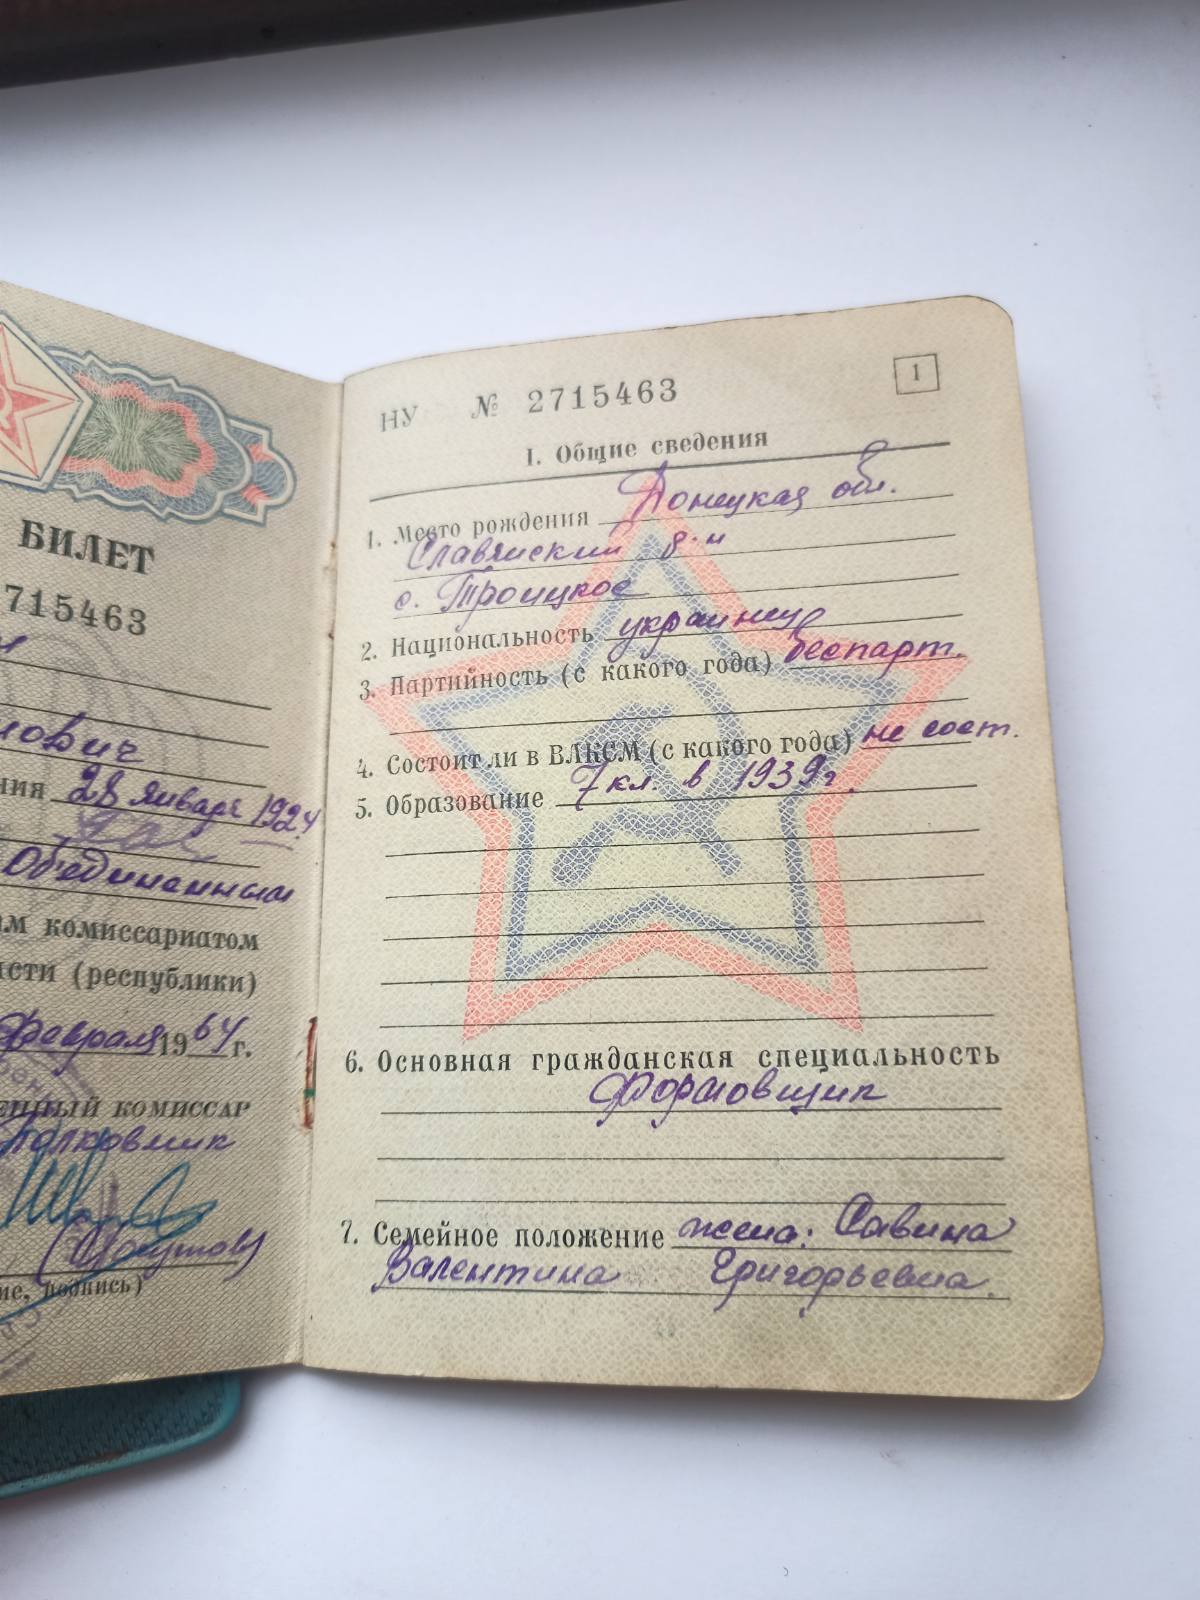 БИЛЕТ
715463
лович
ния 28 января 1924
Объединенным
ам комиссариатом
сти (республики)
февраля 1964 г.
ЕННЫЙ КОМИССАР
Полковник
ие, подпись)
1
НУ № 2715463
I. Общие сведения
1. Место рождения Донецкая обл.
Славянский р-н
с. Троицкое
2. Национальность украинец
3. Партийность (с какого года) беспарт.
4. Состоит ли в ВЛКСМ (с какого года) не сост.
5. Образование 7 кл. в 1939 г.
6. Основная гражданская специальность
Формовщик
7. Семейное положение жена: Савина
Валентина Григорьевна.